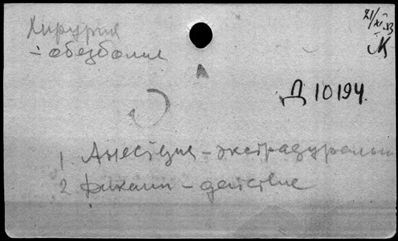 Хирургия
- обезболив
21/XI 53
К
Д 10194.
1. Анестезия - экстрадуральн
2. - действие